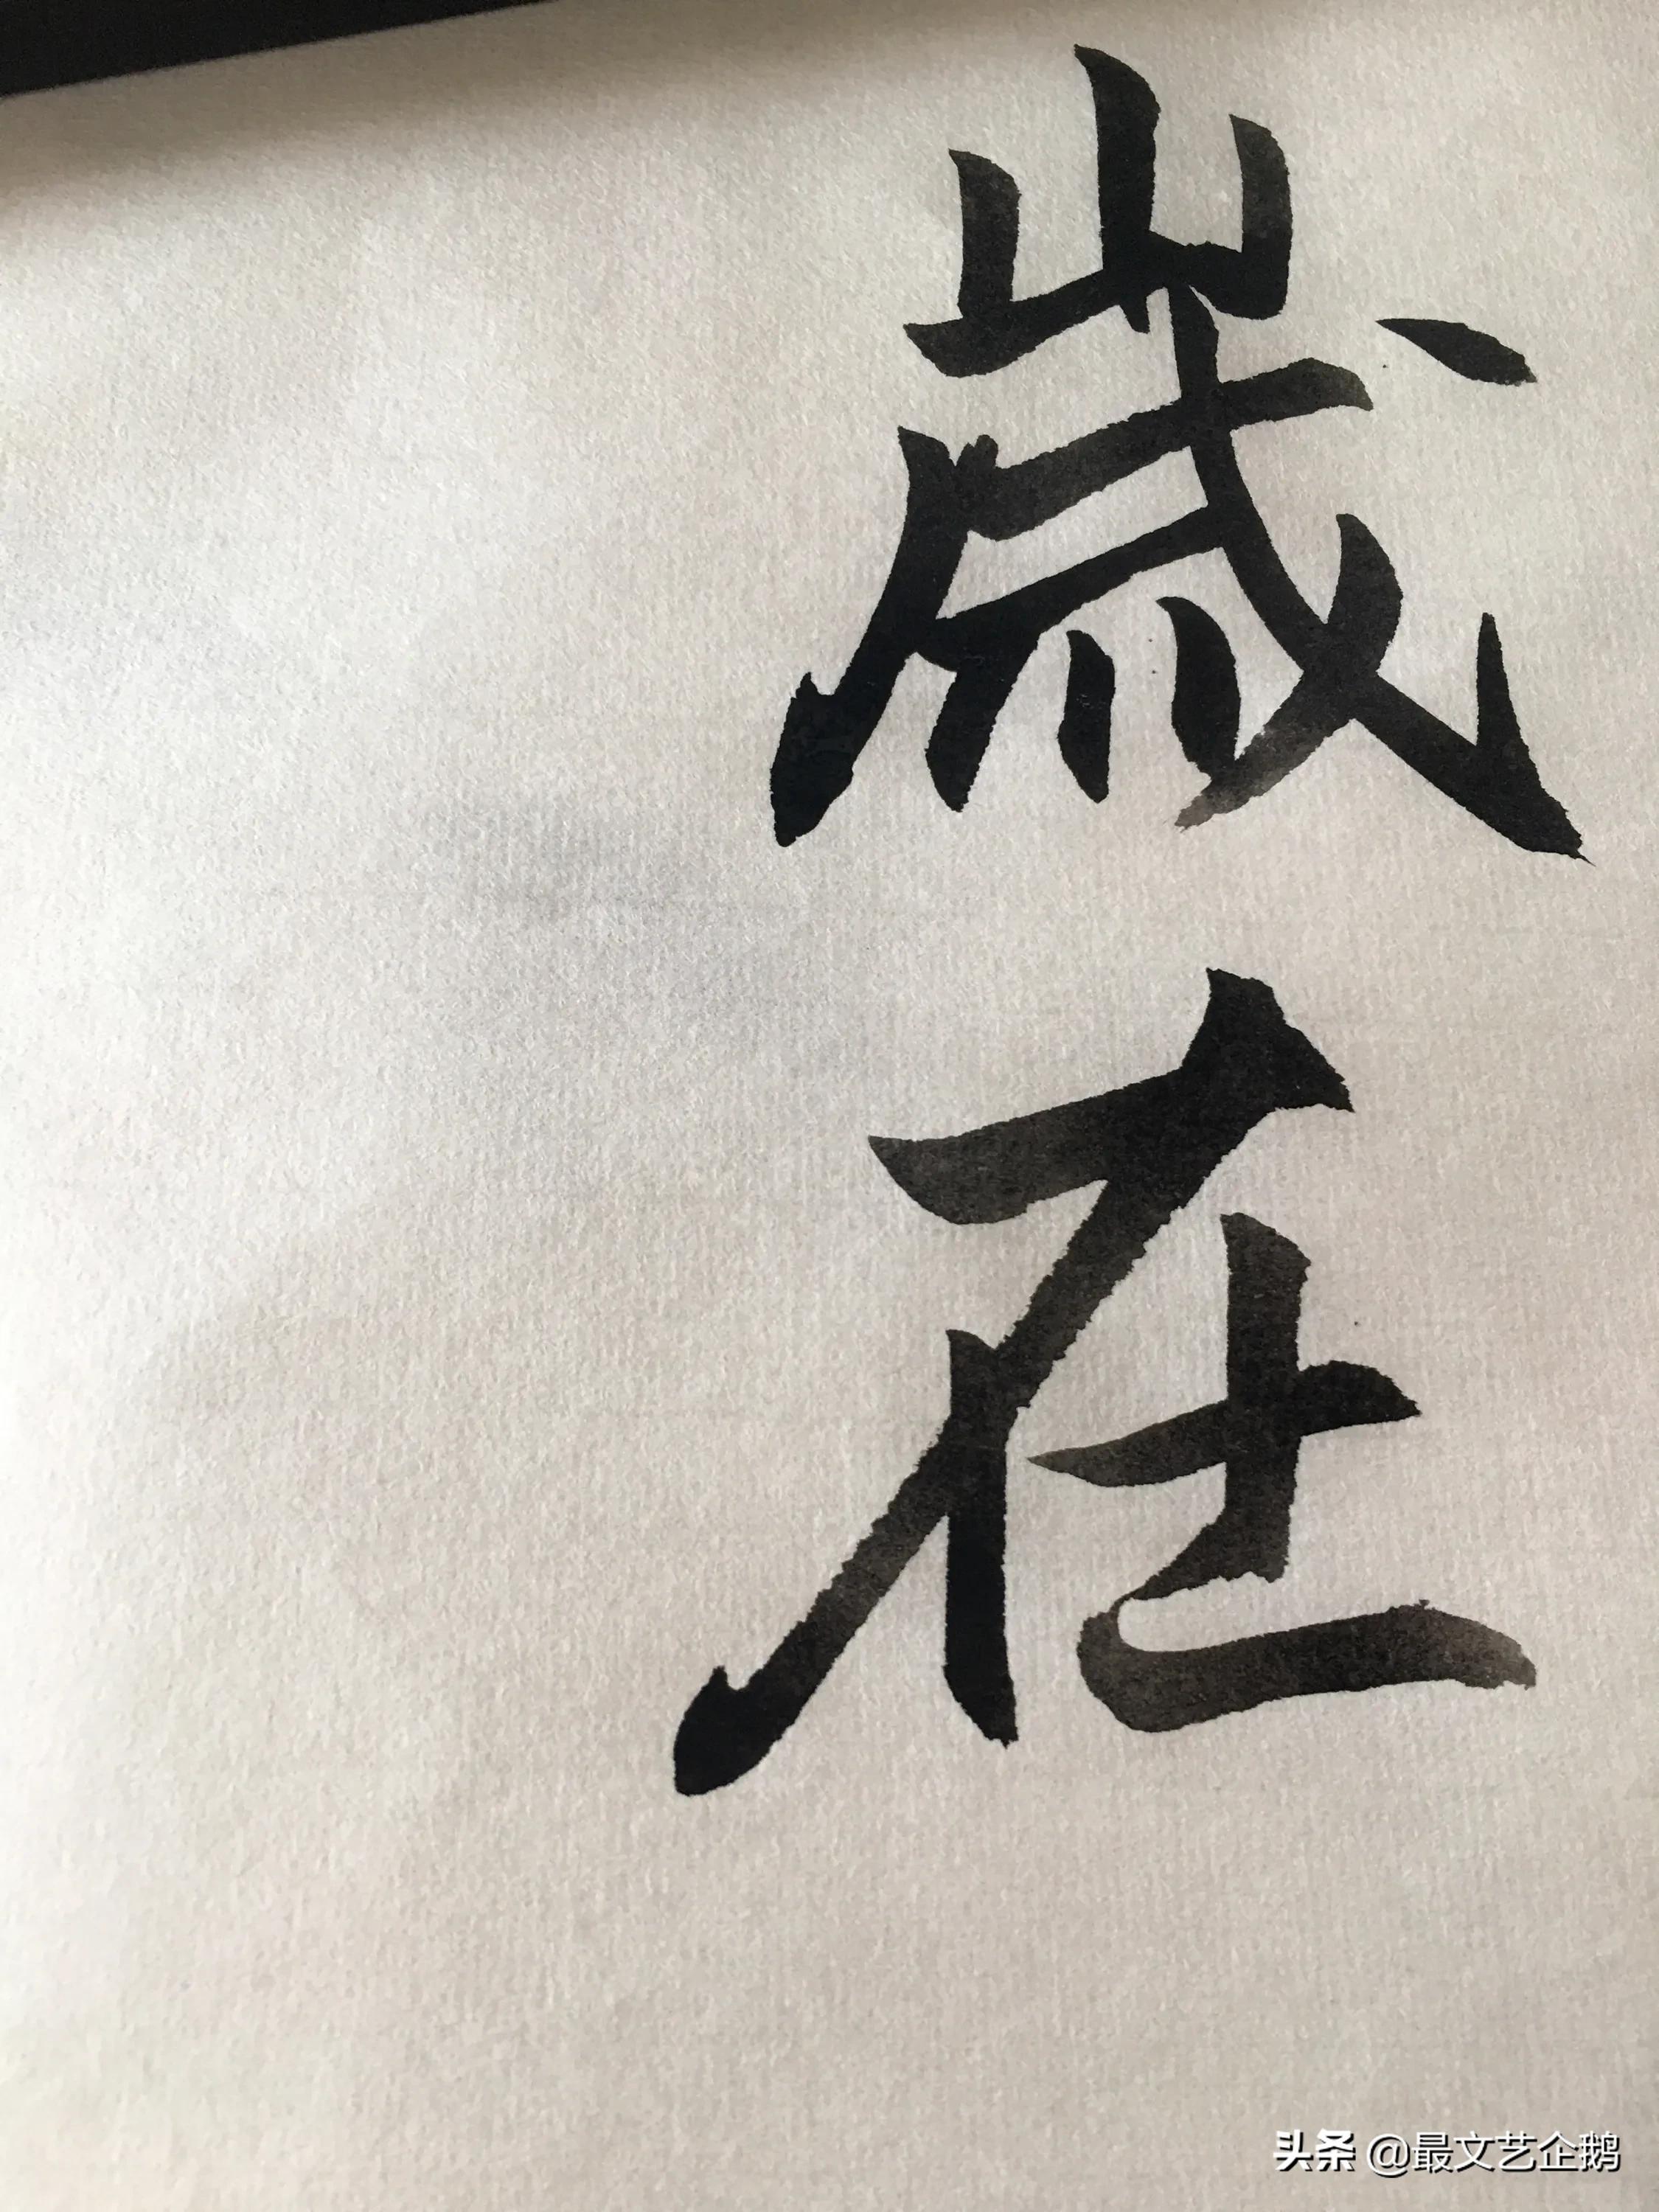 歲在
头条 @最文艺企鹅